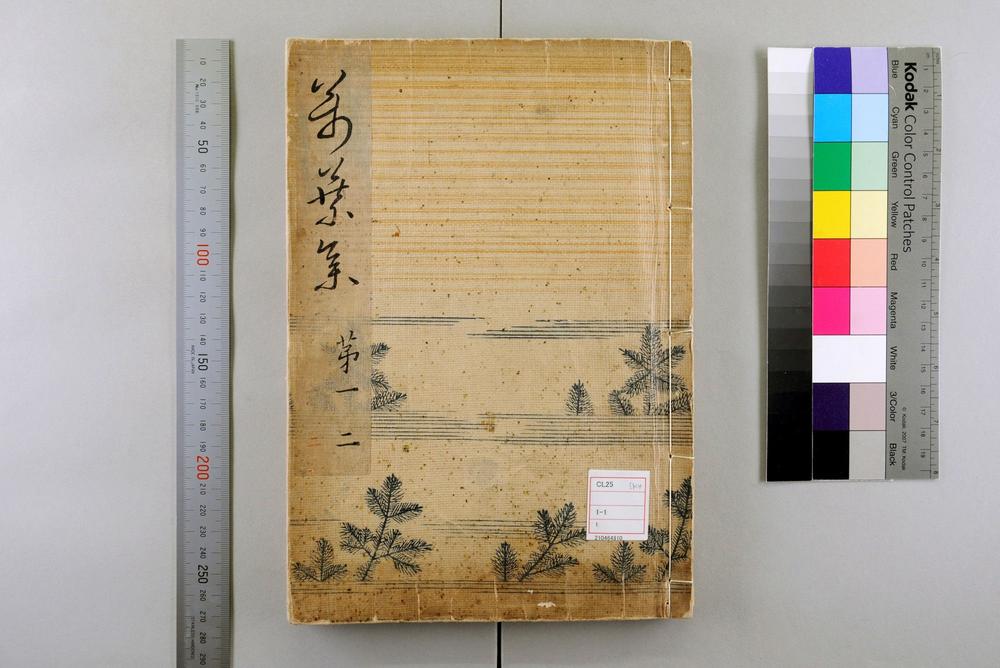 萬葉集
第一
二
CL25
1-1
1
210464810
10
20
30
40
50
60
70
80
90
100
110
120
130
140
150
160
170
180
190
200
210
220
230
240
250
260
270
280
290
Kodak Color Control Patches
Blue
Cyan
Green
Yellow
Red
Magenta
White
3/Color
Black
© Kodak, 2007 TM: Kodak